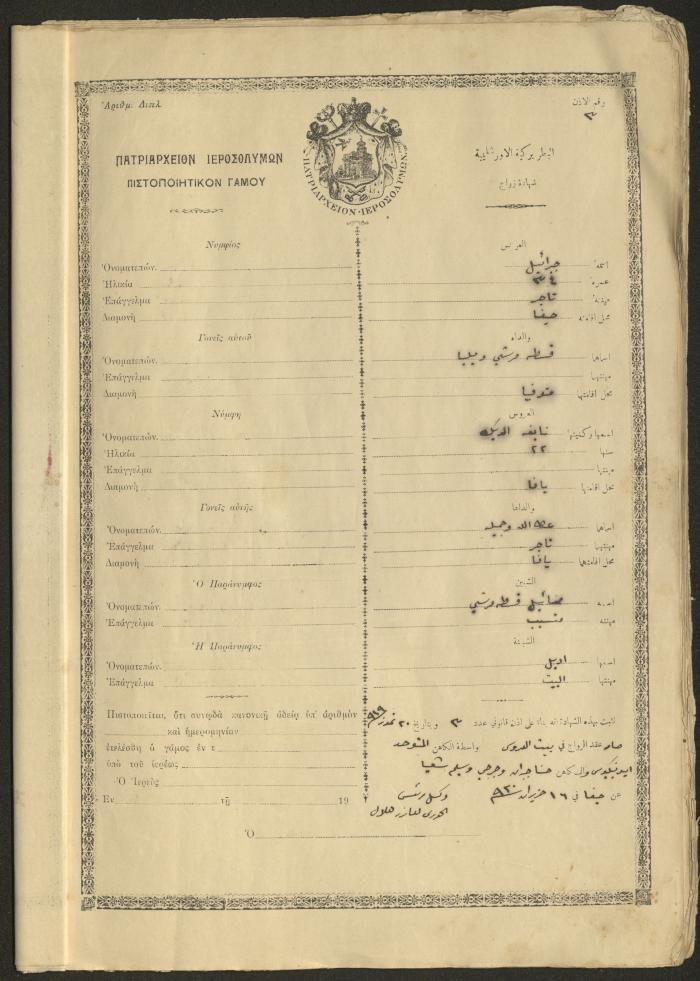 Ἀριθμ. Διπλ.
ΠΑΤΡΙΑΡΧΕΙΟΝ ΙΕΡΟΣΟΛΥΜΩΝ
ΠΙΣΤΟΠΟΙΗΤΙΚΟΝ ΓΑΜΟΥ
ΠΑΤΡΙΑΡΧΕΙΟΝ·ΙΕΡΟΣΟΛΥΜΩΝ
رقم الاذن
٣
البطريركية الاورشليمية
شهادة زواج
Νυμφίος
Ὀνοματεπών.
Ἡλικία
Ἐπάγγελμα
Διαμονή
Γονεῖς αὐτοῦ
Ὀνοματεπών.
Ἐπάγγελμα
Διαμονή
Νύμφη
Ὀνοματεπών.
Ἡλικία
Ἐπάγγελμα
Διαμονή
Γονεῖς αὐτῆς
Ὀνοματεπών.
Ἐπάγγελμα
Διαμονή
Ὁ Παράνυμφος
Ὀνοματεπών.
Ἐπάγγελμα
Ἡ Παράνυμφος
Ὀνοματεπών.
Ἐπάγγελμα
Πιστοποιεῖται, ὅτι συνῳδὰ κανονικῇ ἀδείᾳ ὑπ' ἀριθμὸν
καὶ ἡμερομηνίαν
ἐτελέσθη ὁ γάμος ἐν τ
ὑπὸ τοῦ ἱερέως
Ὁ Ἱερεὺς
Ἐν τῇ 19
Ὁ
العريس
اسمه جبرائيل
عمره ٣٤
مهنته تاجر
محل اقامته حيفا
والداه
اسماهما قسطه ورشي وميليا
مهنتهما
محل اقامتهما متوفيا
العروس
اسمها وكنيتها نايفه الديك
سنها ٢٢
مهنتها
محل اقامتها يافا
والداها
اسماهما عطالله وجميله
مهنتهما تاجر
محل اقامتهما يافا
الشبين
اسمه ميخائيل قسطه ورشي
مهنته متسبب
الشبينة
اسمها اديل
مهنتها البيت
ثبت بهذه الشهادة انه بناءً على اذن قانوني عدد ٣ وبتاريخ ٢٠ تموز
صار عقد الزواج في بيت العروس بواسطة الكاهن المتوحد
والكاهن وجرجي وسليم شعيا
عن حيفا في ١٦ حزيران ٩٢٠ وكيل رئيس
الخوري لعازر هلال